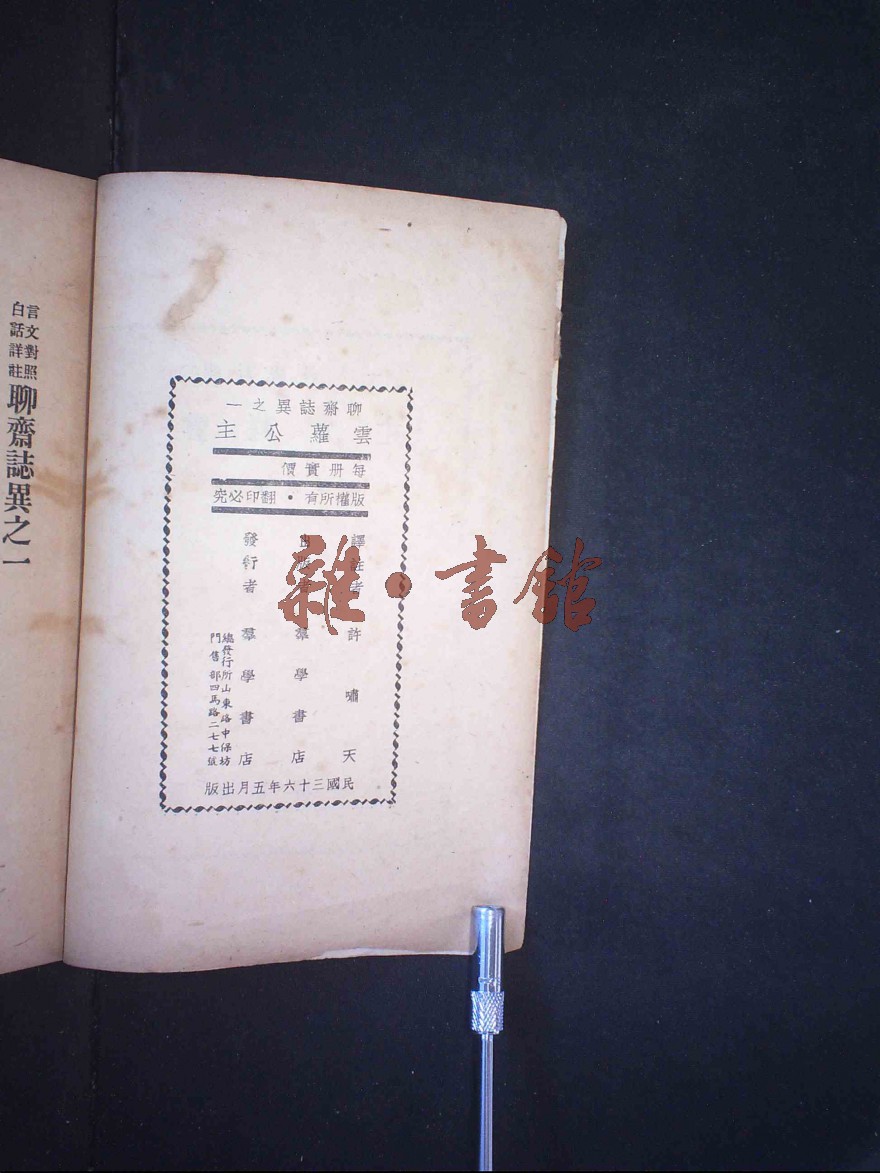 聊齋誌異之一
雲蘿公主
每册實價
版權所有・翻印必究
譯註者 許嘯天
出版者 羣學書店
發行者 羣學書店
總發行所山東路中保坊
門售部四馬路二七七號
民國三十六年五月出版
言文對照
白話詳註
聊齋誌異之一
雜・書館